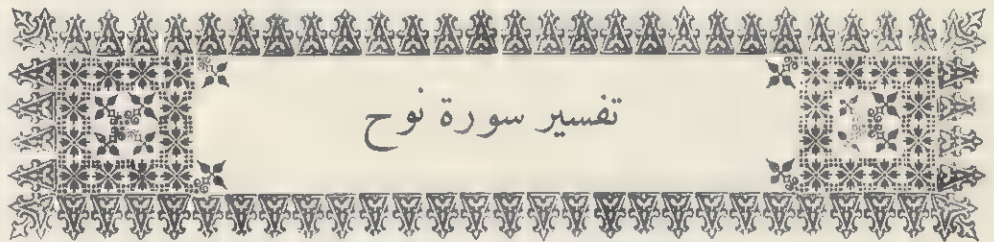 تفسير سورة نوح